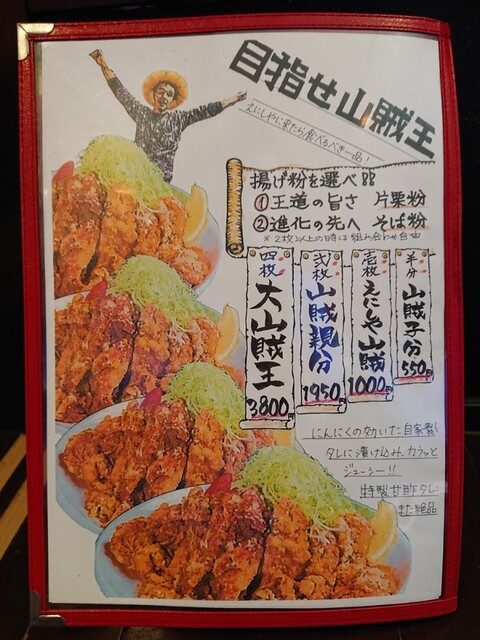 目指せ山賊王
えにしやに来たら食べるべき一品！
揚げ粉を選べ!!
①王道の旨さ 片栗粉
②進化の先へ そば粉
※2枚以上の時は組み合わせ自由
半分 山賊子分 550円
壱枚 えにしや山賊 1000円
弐枚 山賊親分 1950円
四枚 大山賊王 3800円
にんにくの効いた自家製
タレに漬け込み、カラッと
ジューシー!!
特製甘酢タレ
また絶品